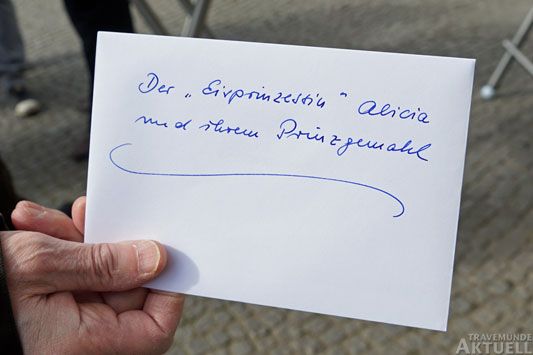 Der „Eisprinzessin" Alicia
und ihrem Prinzgemahl
TRAVEMÜNDE
AKTUELL